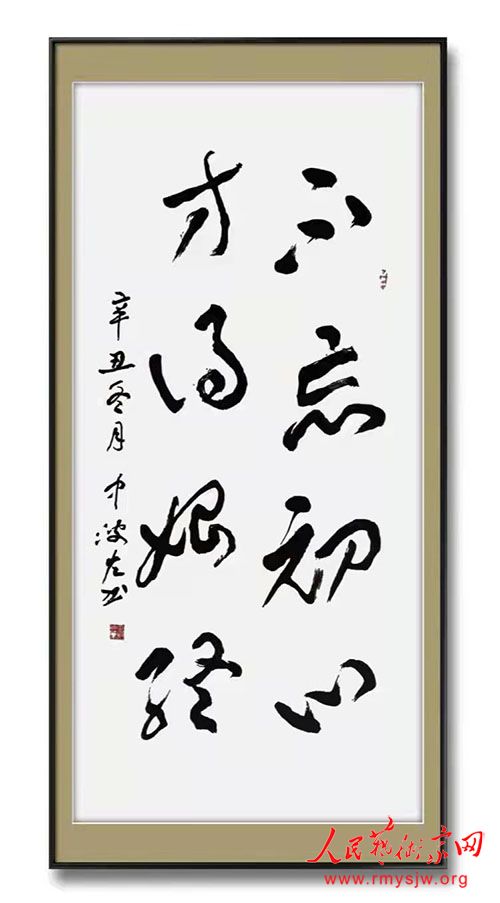 不忘初心
方得始终
辛丑冬月 中波左书
人民藝術家网
www.rmysjw.org